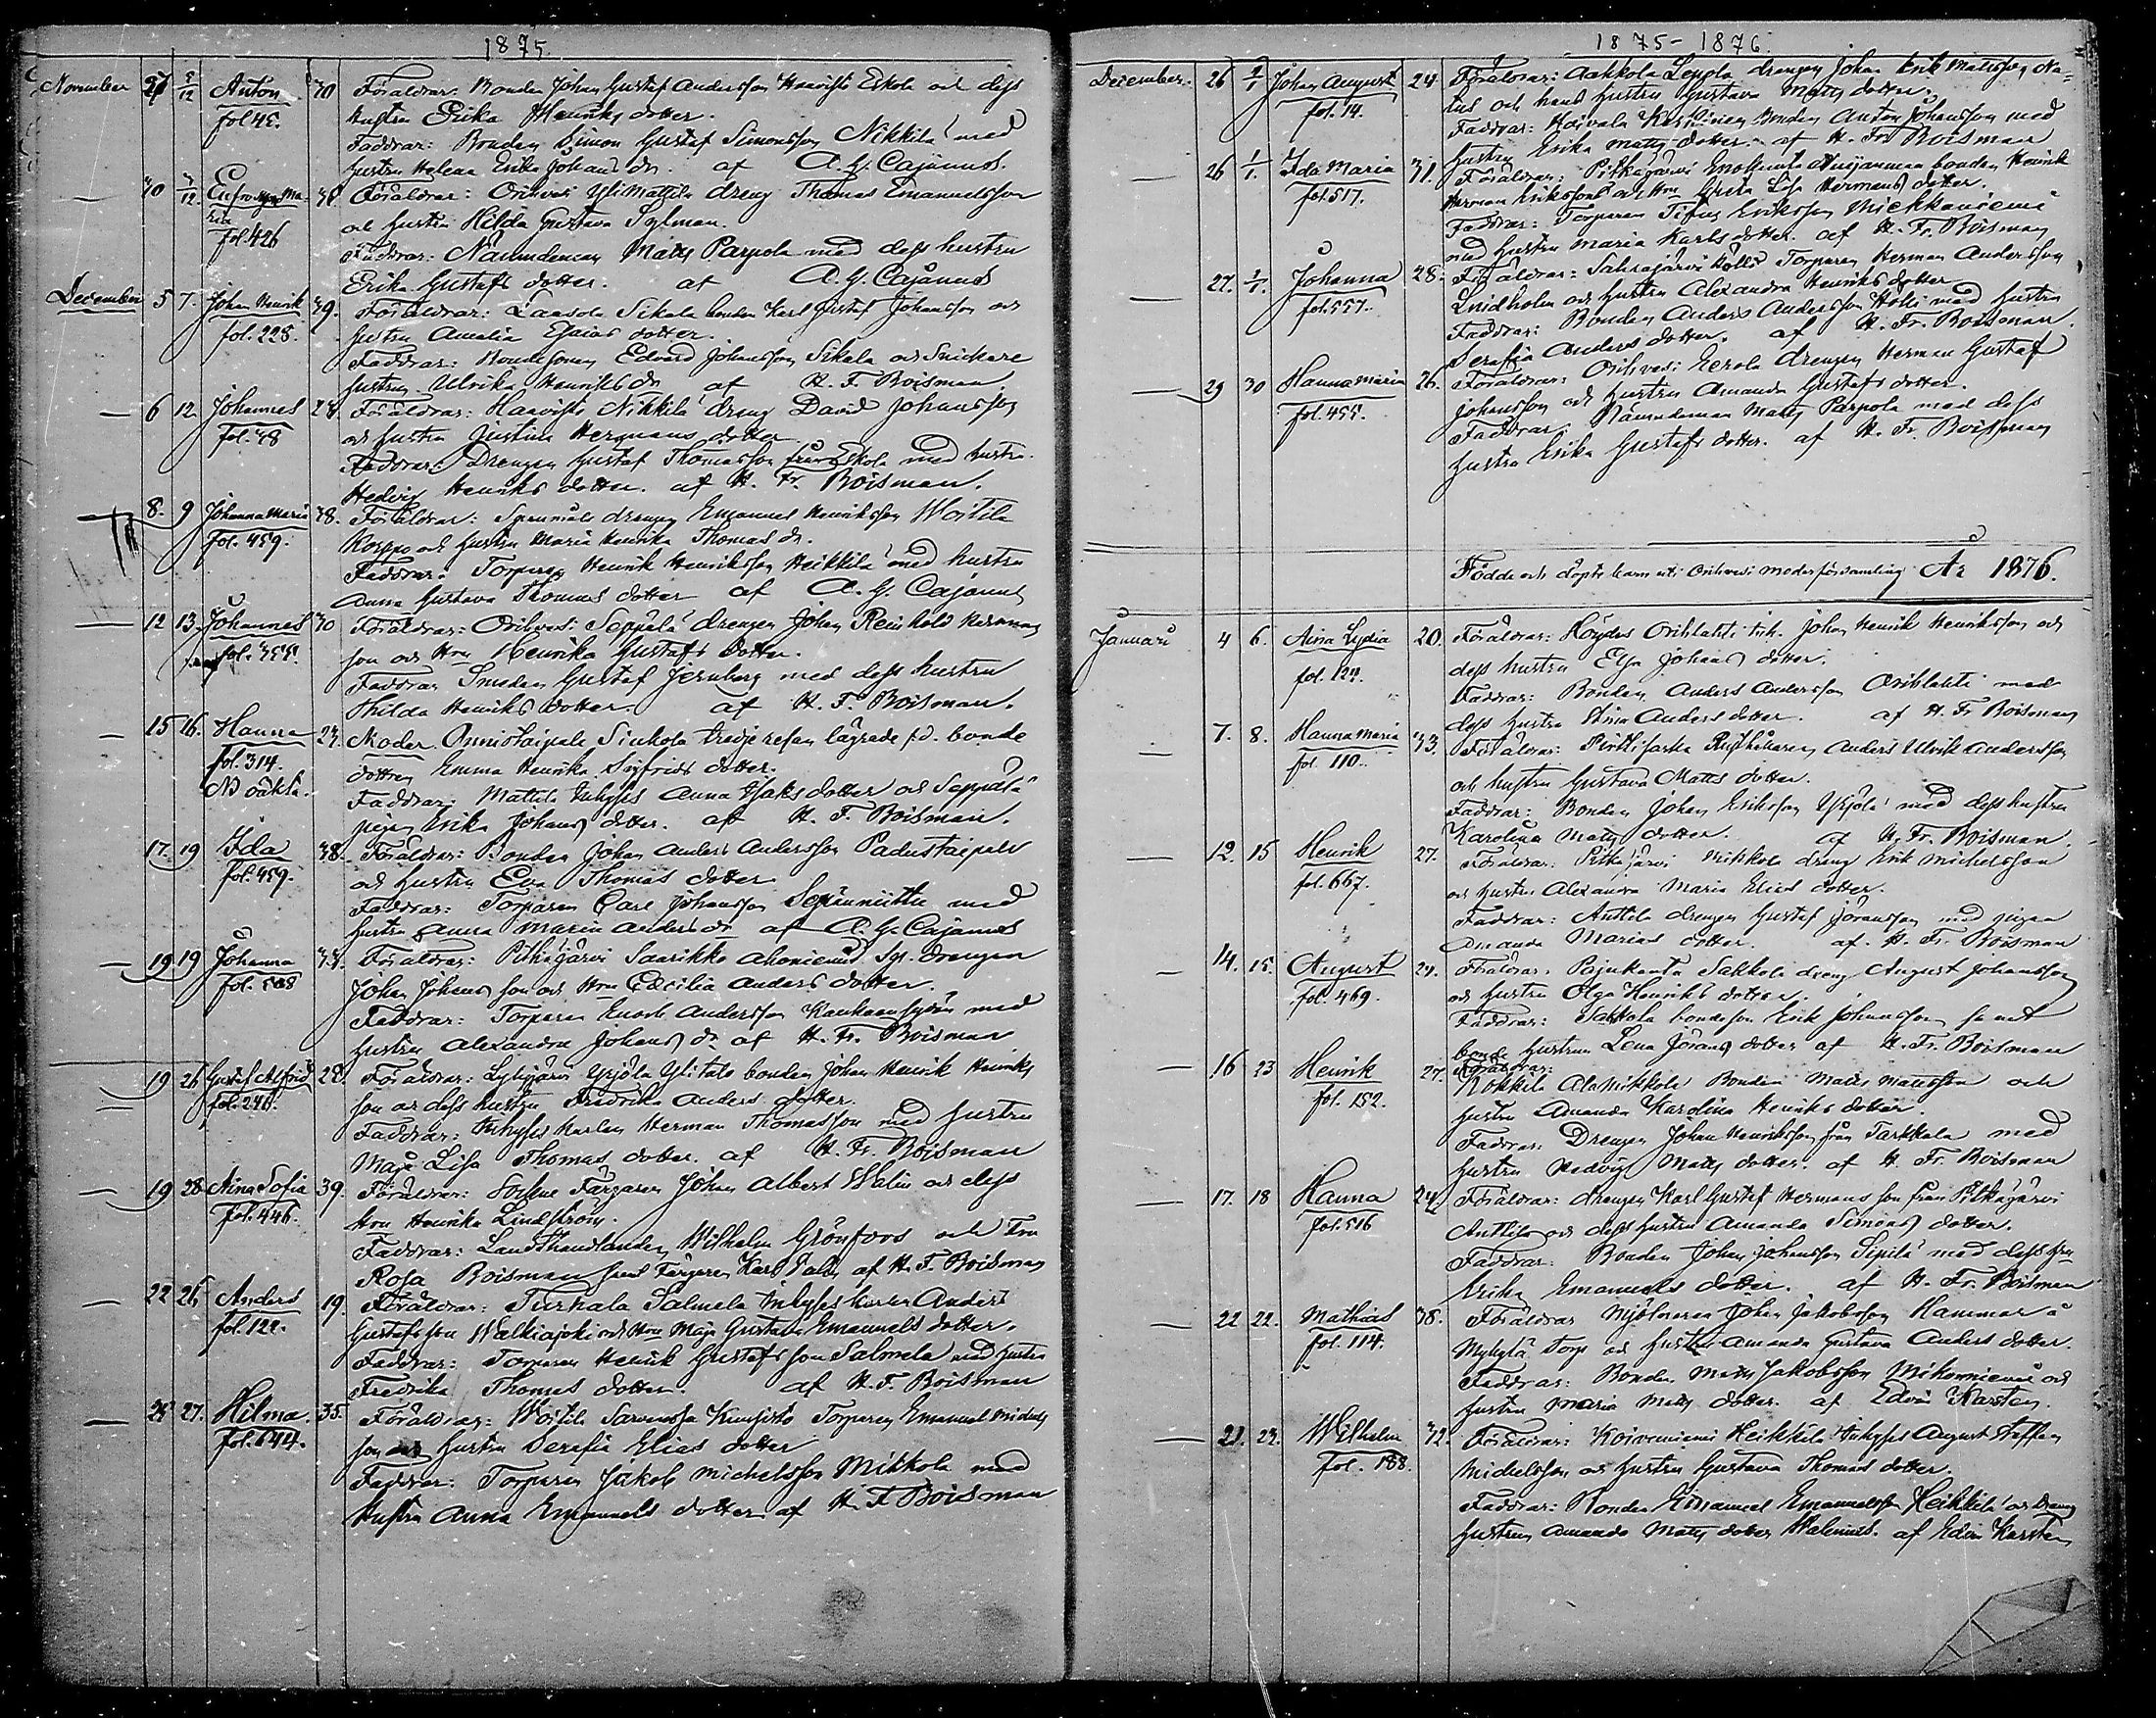 1875.
November 27 5/12 Anton 30 Föräldrar: Bonden Johan Gustaf Andersson Haavisto Eskola och dess
fol 45. hustru Erika Henriks dotter.
Faddrar: Bonden Simon Gustaf Simonsson Nikkilä med
hustru Helena Erika Johans dr. af A. G. Cajanus.
— 30 /12 Eufrosyne Ma- Föräldrar: Orihvesi Yli Mattila dreng Thomas Emanuelsson
ria och hustru Hilda Gustava Sylman.
fol. 426 Faddrar: Nämndeman Matts Parpola med dess hustru
Erika Gustafs dotter. af A. G. Cajanus
December 5 7. Johan Henrik 39. Föräldrar: Laasola Sikala bonden Karl Gustaf Johansson och
fol. 228. hustru Amalia Esaias dotter.
Faddrar: Bondesonen Edvard Johansson Sikala och Snickare
hustrun Ulrika Henriks dr af H. F. Boisman.
— 6 12. Johannes 28. Föräldrar: Haavisto Nikkilä dreng David Johansson
fol. 48 och hustru Justina Hermans dotter.
Faddrar: Drengen Gustaf Thomasson från Eskola med hustru
Hedvig Henriks dotter. af H. Fr. Boisman.
8. 9 Johanna Maria 38. Föräldrar: drengen Emanuel Henriksson Woitila
fol. 459. Korppo och hustru Maria Henrika Thomas dr.
Faddrar: Torparen Henrik Henriksson Heikkilä med hustru
Anna Gustava Thomas dotter af A. G. Cajanus
— 12 13. Johannes 30 Föräldrar: Orihvesi Seppälä drengen Johan Reinhold Hermans
fol. 355. son och Hru Henrika Gustafs dotter.
Faddrar Smeden Gustaf Jernberg med dess hustru
Hilda Henriks dotter. af H. F. Boisman.
— 15 16. Hanna 27. Moder Onnistaipale Sinkola tredje resan lägrade f.d. bonde
fol. 314. dottren Emma Henrika Sigfrids dotter.
NB oäkta. Faddrar: Mattila Inhyses Anna Isaks dotter och Seppälä
pigan Erika Johans dotter. af H. F. Boisman.
17. 19 Ida 38. Föräldrar: Bonden Johan Anders Andersson Padustaipale
fol. 459. och hustru Eva Thomas dotter
Faddrar: Torparen Carl Johansson Sepänniittu med
hustru Anna Maria Anders dr af A. G. Cajanus
— 19 19 Johanna Föräldrar: Pitkäjärvi Saarikko Ahoniemi Sp. drengen
fol. 508 Johan Johans son och Hru Cæcilia Anders dotter.
Faddrar: Torparen Enock Andersson med
hustru Alexandra Johans dr. af H. Fr. Boisman
— 19 26 Gustaf Alfrid 22. Föräldrar: Lyhyjärvi Yrjölä Ylitalo bonden Johan Henrik Henriks
fol. 246. son och dess hustru Fredrika Anders dotter.
Faddrar: Inhyses karlen Herman Thomasson med hustru
Maja Lisa Thomas dotter. af H. Fr. Boisman
— 19 28 Aina Sofia 39. Föräldrar: Färgaren Johan Albert Walin och dess
fol. 446. Hru Henrika Lindström.
Faddrar: Landthandlanden Wilhelm Grönfors och Fru
Rosa Boisman samt Färgaren Karl af H. F. Boisman
— 22 26 Anders 19. Föräldrar: Turkala Salmela Inhyses karlen Anders
fol. 122. Gustafsson Walkiajoki och Hru Maja Gustava Emanuels dotter.
Faddrar: Torparen Henrik Gustafs son Salmela med hustru
Fredrika Thomas dotter. af H. F. Boisman
— 25 27. Hilma 35. Föräldrar: Woitila Sarvansa Kuusisto Torparen Emanuel Michels
fol. 644. son och hustru Serafia Elias dotter
Faddrar: Torparen Jakob Michelsson Mikkola med
hustru Anna Emanuels dotter af H. F. Boisman
1875-1876.
December. 26 Johan August 24. Föräldrar: Aakkola Leppola drengen Johan Erik Mattsson Na-
fol. 14. tus och hans hustru Gustava Matts dotter.
Faddrar: Koivala Bonden Anton Johansson med
hustru Erika Matts dotter. af H. Fr. Boisman
— 26 1/1. Ida Maria 31. Föräldrar: Pitkäjärvi bonden Henrik
fol. 517. Herman Eriksson och Hru Greta Lisa Hermans dotter.
Faddrar: Torparen Titus Eriksson Miekkaniemi
med hustru Maria Karls dotter. af H. Fr. Boisman
— 27. 1/1. Johanna 28. Föräldrar: Sahrajärvi Hölli Torparen Herman Andersson
fol. 557. Lindholm och hustru Alexandra Henriks dotter
Faddrar: Bonden Anders Andersson Hölli med hustru
Serafia Anders dotter. af H. Fr. Boisman.
— 29 30 Hanna Maria 26. Föräldrar: Orihvesi Eerola drengen Herman Gustaf
fol. 455. Johansson och hustru Amanda Gustafs dotter.
Faddrar: Nämndeman Matts Parpola med dess
hustru Erika Gustafs dotter. af H. Fr. Boisman
Födde och döpte barn uti Orihvesi moderförsamling År 1876.
Januari 4 6. Aina Lydia 20. Föräldrar: Orihlahti Johan Henrik Henriksson och
fol. 124. dess hustru Elsa Johans dotter.
Faddrar: Bonden Anders Andersson Orihlahti med
dess hustru Stina Anders dotter. af H. Fr Boisman
— 7. 8. Hanna Maria 33. Föräldrar: Anders Ulrik Andersson
fol. 110. och hustru Gustava Matts dotter.
Faddrar: Bonden Johan Eriksson Yrjölä med dess hustru
Karolina Matts dotter. af H. Fr. Boisman.
— 12. 15 Henrik 27. Föräldrar: Pitkäjärvi Mikkola dreng Erik Michelsson
fol. 667. och hustru Alexandra Maria Elias dotter.
Faddrar: Anttila drengen Gustaf Göransson med pigan
Amanda Marias dotter. af. H. Fr. Boisman
— 14. 15. August 24. Föräldrar: Pajukanta Sakkola dreng August Johansson
fol. 469. och hustru Olga Henriks dotter.
Faddrar: Sakkola bondeson Erik Johansson samt
bonde hustrun Lena Görans dotter af H. Fr. Boisman
— 16 23 Henrik 27. Föräldrar:
fol. 152. Kokkila Alamikkola Bonden Matts Mattsson och
hustru Amanda Karolina Henriks dotter.
Faddrar: Drengen Johan Henriksson från Tarkkala med
hustru Hedvig Matts dotter. af H. Fr. Boisman
— 17. 18 Hanna 24 Föräldrar: drengen Karl Gustaf Hermans son från Pitkäjärvi
fol. 516 Anttila och dess hustru Amanda Simons dotter.
Faddrar: Bonden Johan Johansson Sipilä med dess fru
Erika Emanuels dotter. af H. Fr. Boisman
— 22 22. Mathias 38. Föräldrar Mjölnaren Johan Jakobsson Hammar å
fol. 114. Mylylä Torp och hustru Amanda Gustava Anders dotter.
Faddrar: Bonden Matts Jakobsson och
hustru Maria Matts dotter. af Edvin Karsten.
— 21. 23. Wilhelm 32. Föräldrar: Koivuniemi Heikkilä Inhyses August Steffan
fol. 188. Michelsson och hustru Gustava Thomas dotter.
Faddrar: Bonden Emanuel Emanuelsson Heikkilä och dreng
hustrun Amanda Matts dotter af Edvin Karsten